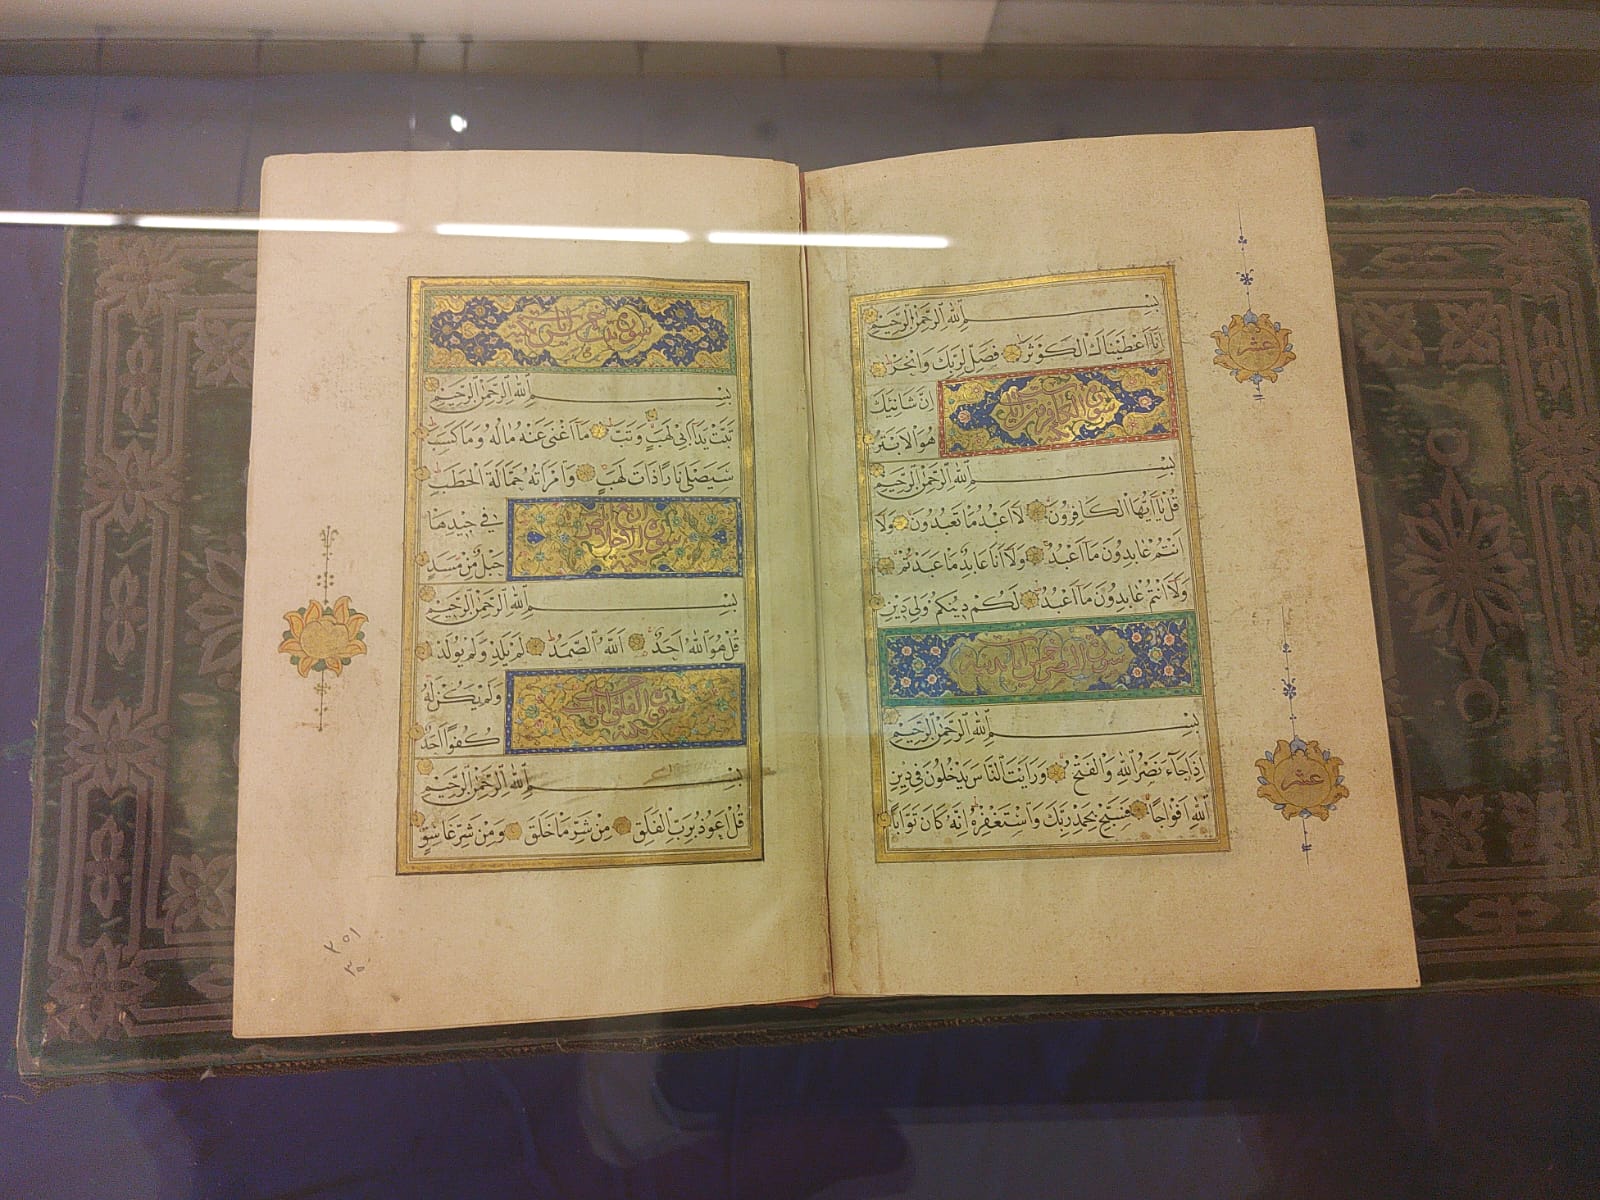 بسم الله الرحمن الرحيم
انا اعطيناك الكوثر فصل لربك وانحر
ان شانئك
هو الابتر
بسم الله الرحمن الرحيم
قل يا ايها الكافرون لا اعبد ما تعبدون ولا
انتم عابدون ما اعبد ولا انا عابد ما عبدتم
ولا انتم عابدون ما اعبد لكم دينكم ولي دين
سورة النصر
بسم الله الرحمن الرحيم
اذا جاء نصر الله والفتح ورايت الناس يدخلون في دين
الله افواجا فسبح بحمد ربك واستغفره انه كان توابا
عشر
عشر
بسم الله الرحمن الرحيم
تبت يدا ابي لهب وتب ما اغنى عنه ماله وما كسب
سيصلى نارا ذات لهب وامراته حمالة الحطب
في جيدها
حبل من مسد
سورة الاخلاص
بسم الله الرحمن الرحيم
قل هو الله احد الله الصمد لم يلد ولم يولد
ولم يكن له
كفوا احد
سورة الفلق
بسم الله الرحمن الرحيم
قل اعوذ برب الفلق من شر ما خلق ومن شر غاسق